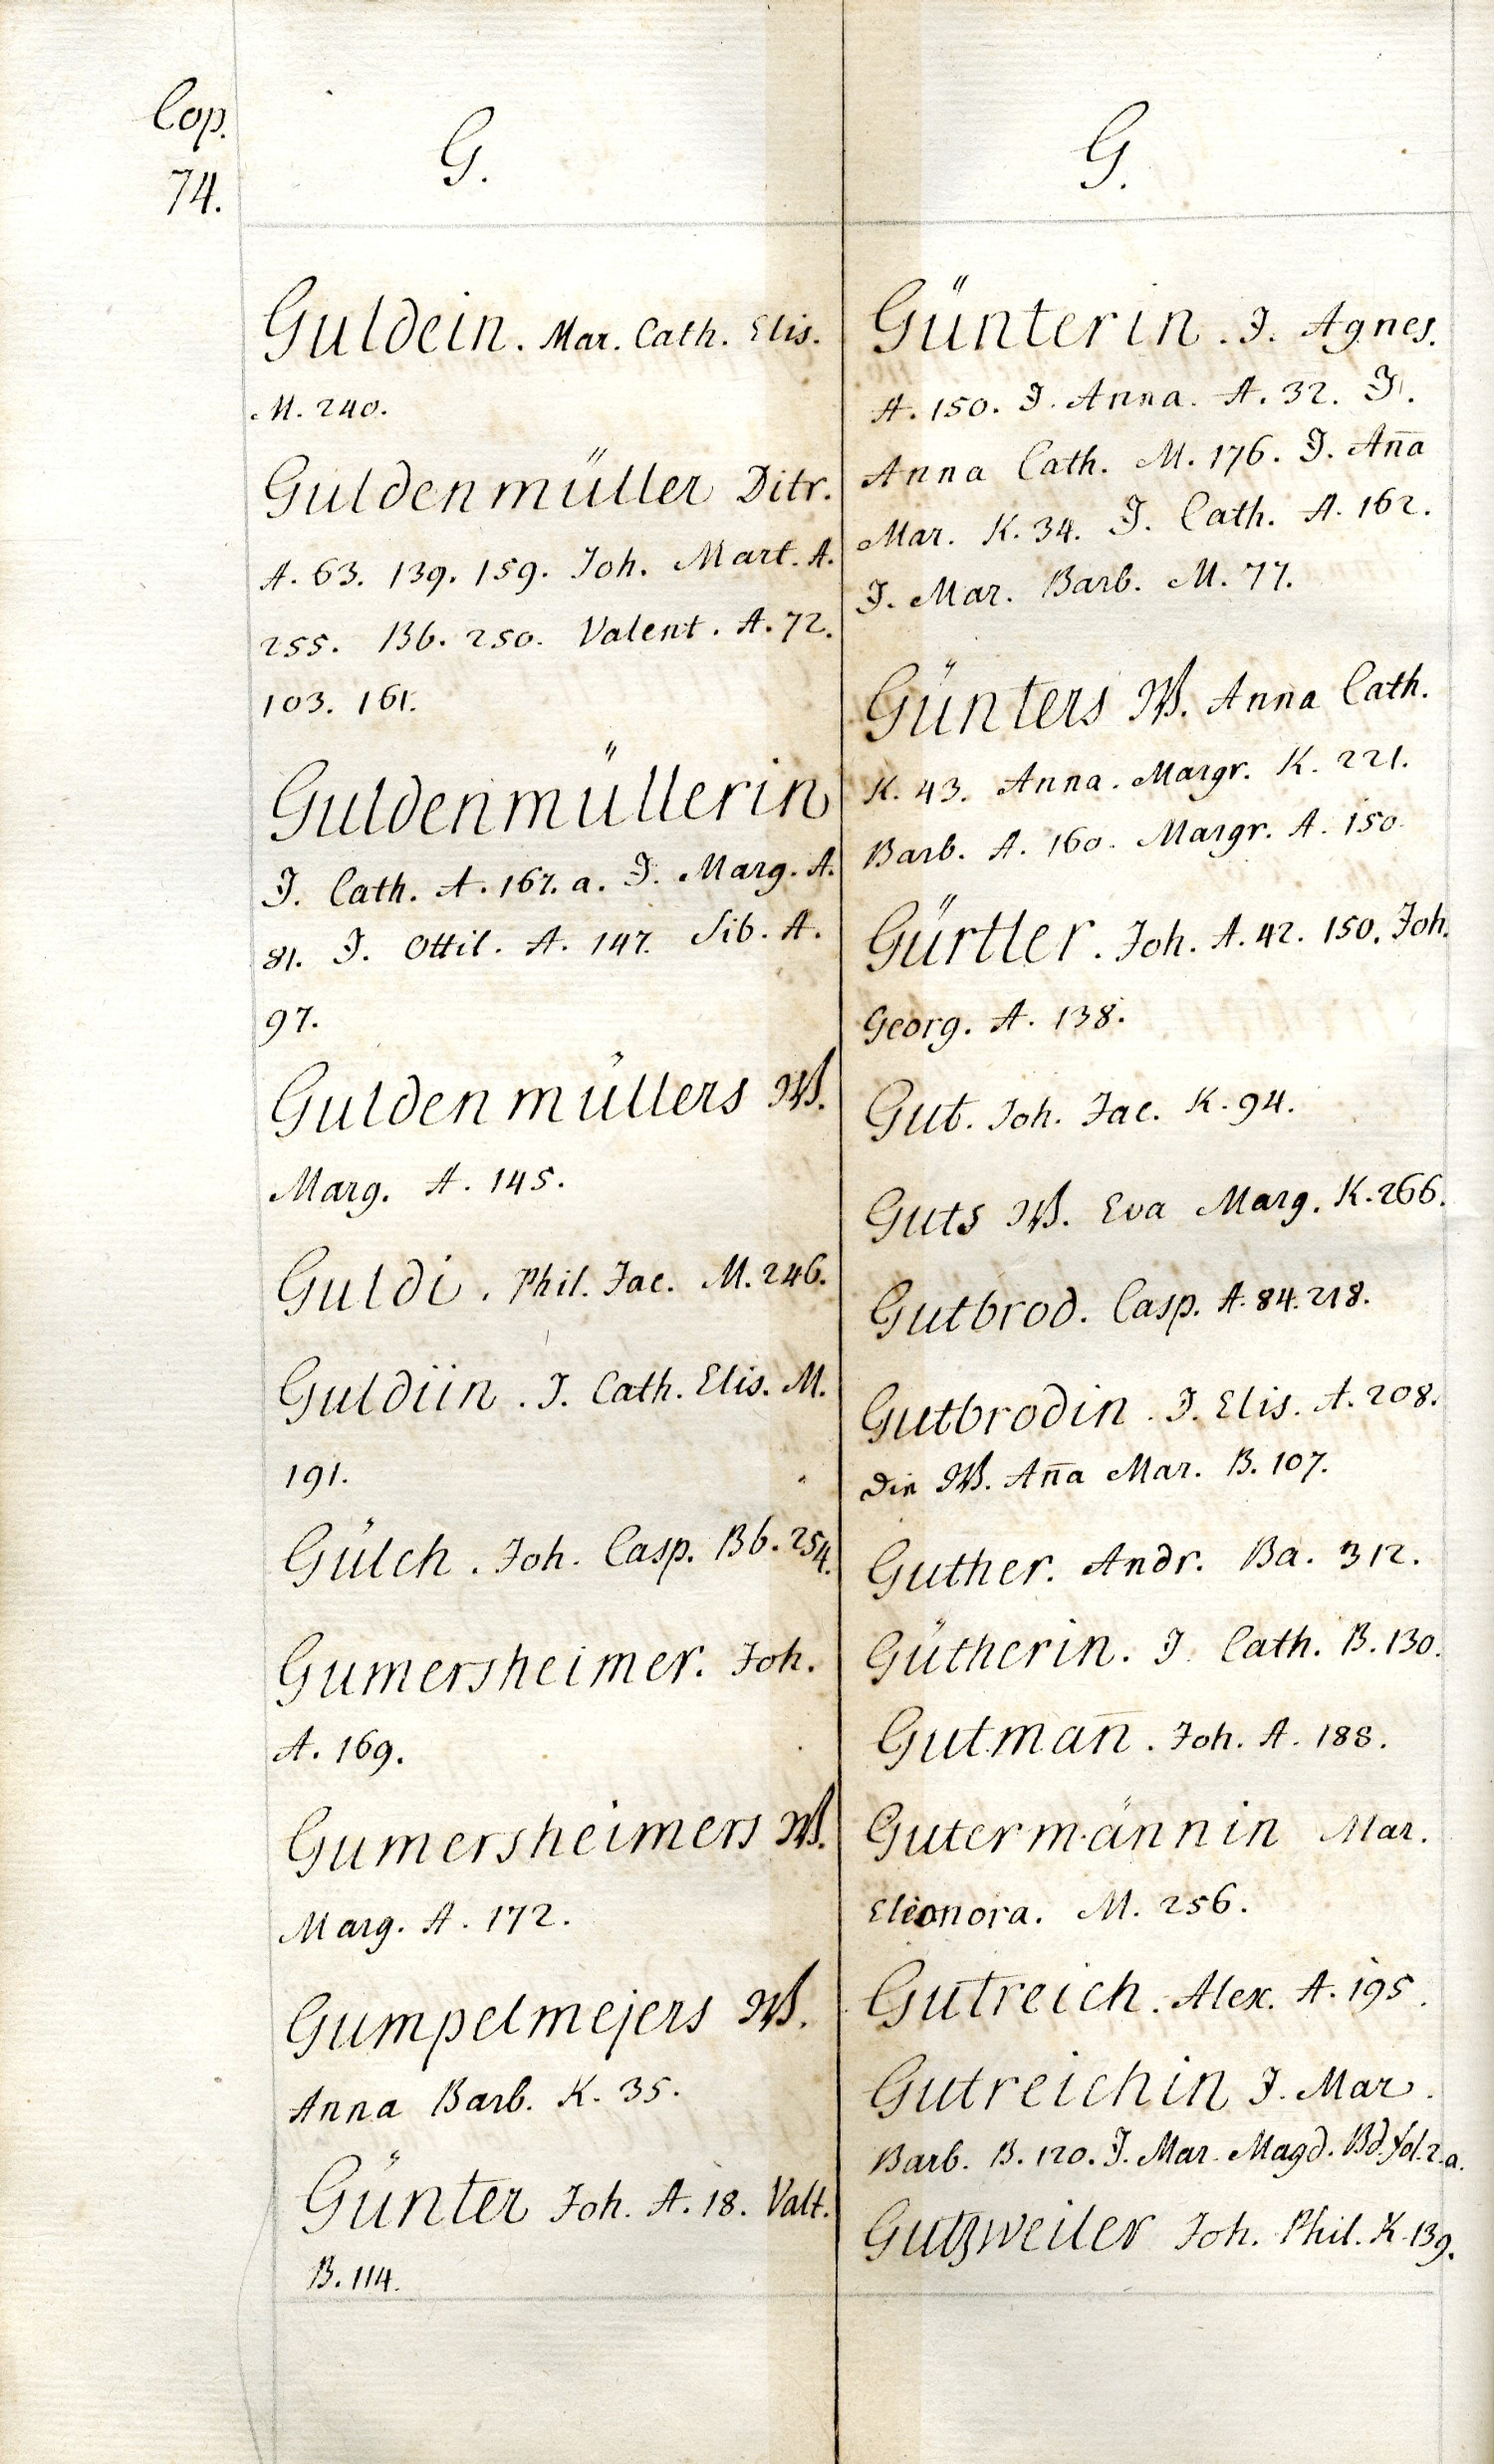 Cop.
74.
G.
Guldein. Mar. Cath. Elis.
M. 240.
Guldenmüller Ditr.
A. 63. 139. 159. Joh. Mart. A.
255. Bb. 250. Valent. A. 72.
103. 161.
Guldenmüllerin
J. Cath. A. 167. a. J. Marg. A.
81. J. Ottil. A. 147. Sib. A.
97.
Guldenmüllers W.
Marg. A. 145.
Guldi. Phil. Jac. M. 246.
Guldiin. J. Cath. Elis. M.
191.
Gülch. Joh. Casp. Bb. 254.
Gumersheimer. Joh.
A. 169.
Gumersheimers W.
Marg. A. 172.
Gumpelmejers W.
Anna Barb. K. 35.
Günter Joh. A. 18. Valt.
B. 114.
G.
Günterin. J. Agnes.
A. 150. J. Anna. A. 32. J.
Anna Cath. M. 176. J. An̄a
Mar. K. 34. J. Cath. A. 162.
J. Mar. Barb. M. 77.
Günters W. Anna Cath.
K. 43. Anna. Margr. K. 221.
Barb. A. 160. Margr. A. 150.
Gürtler. Joh. A. 42. 150. Joh.
Georg. A. 138.
Gut. Joh. Jac. K. 94.
Guts W. Eva Marg. K. 266.
Gutbrod. Casp. A. 84. 218.
Gutbrodin. J. Elis. A. 208.
die W. An̄a Mar. B. 107.
Guther. Andr. Ba. 312.
Gütherin. J. Cath. B. 130.
Gutman̄. Joh. A. 188.
Gutermännin Mar.
Eleonora. M. 256.
Gutreich. Alex. A. 195.
Gutreichin J. Mar.
Barb. B. 120. J. Mar. Magd. Bd. fol. 2. a.
Gutzweiler Joh. Phil. K. 139.